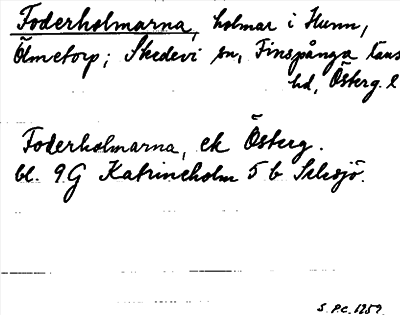 Foderholmarna, holmar i Hunn,
Ölmetorp; Skedevi sn, Finspånga läns
hd, Österg. l
Foderholmarna, ek Österg.
bl. 9 G Katrineholm 5 b Selesjö.
S. P.C. 1959.